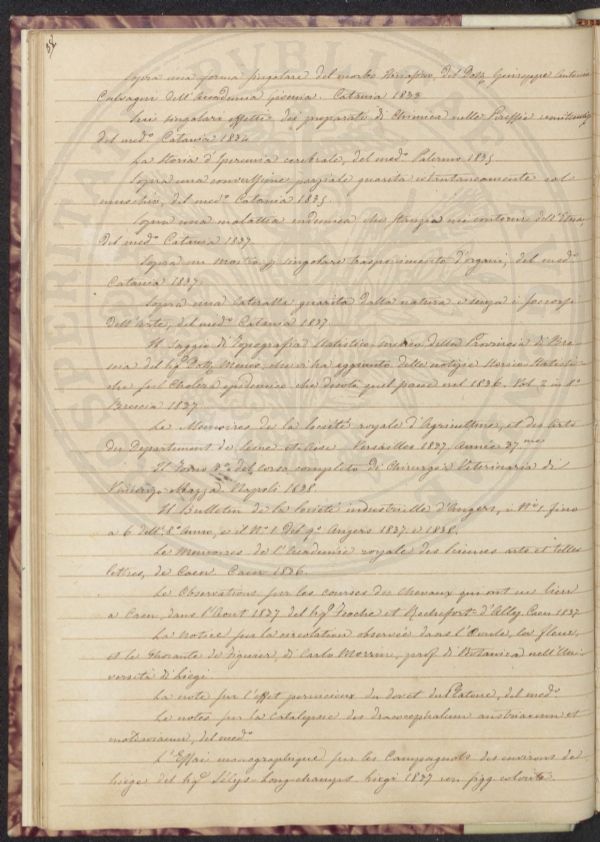 Sopra una forma singolare del morbo del Dott. Giuseppe Antonio
Calvagni dell'Accademia Gioenia. Catania 1833
singolari effetti dei preparati di Chinina nelle
del med.º Catania 1834
La storia d'Ipecuria cerebrale, del med.º Palermo 1835
Sopra una convulsione parziale guarita istantaneamente col
muschio, del med.º Catania 1835.
Sopra una malattia endemica che stanzia nei contorni dell'Etna,
del med.º Catania 1837
Sopra un mostro p. singolare trasponimento d'organi, del med.º
Catania 1837.
Sopra una Cateratta guarita dalla natura e senza i soccorsi
dell'Arte, del med.º Catania 1837
Il Saggio di Topografia statistico-medica della Provincia di Bre=
scia del Sig.r Dott. Menis, che vi ha aggiunto delle notizie storico-statisti=
che sul Cholera epidemico che desolò quel paese nel 1836. Vol. 2 in 8.º
Brescia 1837
Le Memoires de la Societé royale d'Agriculture, et des arts
du Departement de Seine et Oise Versailles 1837 Année 37.me
Il Tomo 2.º del corso completo di Chirurgia Veterinaria di
Vincenzo Mazza Napoli 1838.
Il Bulletin de la Societé industrielle d'Angers, i N.º 1 fino
a 6 dell'8.º Anno, e il N.º 1 del 9.º Angers 1837 e 1838.
Le Memoires de l'Academie royale des sciences arts et belles
lettres, de Caen Caen 1836.
Le Observations sur les courses des chevaux qui ont eu lieu
a Caen, dans l'Aout 1837 del Sig.r et Rochefort-d'Ally Caen 1837
La Notice sur la circolation observée dans l'ovule, la fleur,
et le Phorante de Figuier, di Carlo Morren, prof. di Botanica nell'Uni=
versità di Liegi
La note sur l'effet pernicieux du duvet du Platane, del med.º
Le notes sur la Catalepsie des dracocephalum austriacum et
moldavicum, del med.º
L'Essai monographique sur les Campagnols des environs de
Liege del Sig.r Sélys-Longchamps Liegi 1837 con figg. colorite.